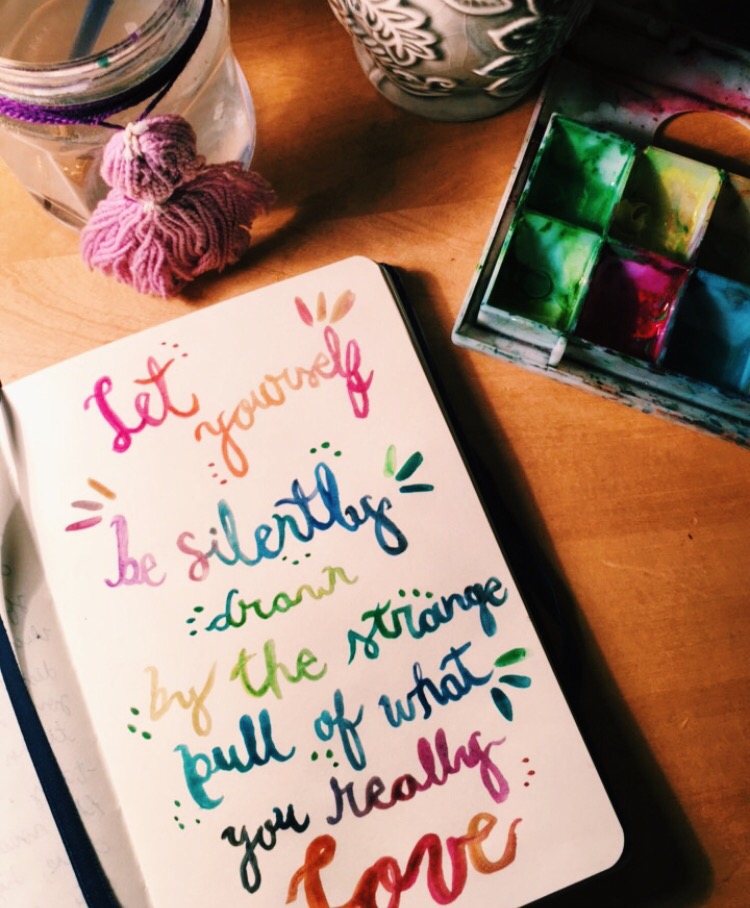 Let yourself
be silently
drawn
by the strange
pull of what
you really
Love